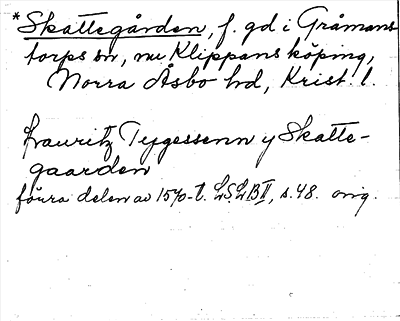 *Skattegården, f. gd i Gråmans
torps sn, nu Klippans köping,
Norra Åsbo hd, Krist. l.
Lauritz Tygessenn y Skatte-
gaarden
förra delen av 1570-t. LSLB II, s. 48. orig.